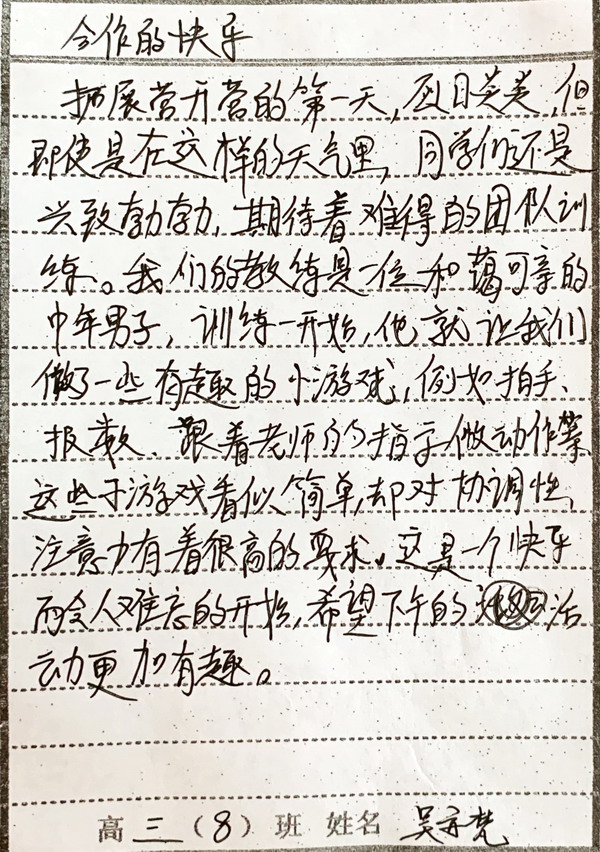 合作的快乐
拓展营开营的第一天,烈日炎炎,但
即使是在这样的天气里,同学们还是
兴致勃勃,期待着难得的团队训
练。我们的教练是一位和蔼可亲的
中年男子,训练一开始,他就让我们
做了一些有趣的小游戏,例如拍手、
报数、跟着老师的指示做动作等,
这些小游戏看似简单,却对协调性、
注意力有着很高的要求。这是一个快乐
而令人难忘的开始,希望下午的活
动更加有趣。
高三(8)班 姓名 吴亦梵